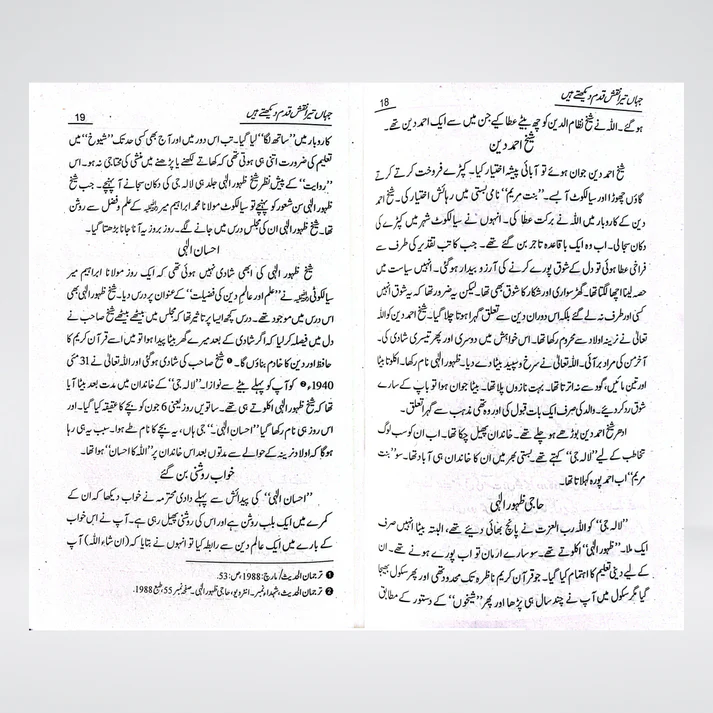 جہاں تیرا نقش قدم دیکھتے ہیں
18
ہو گئے۔ اللہ نے شیخ نظام الدین کو چھ بیٹے عطا کیے جن میں سے ایک احمد دین تھے۔
شیخ احمد دین
شیخ احمد دین جوان ہوئے تو آبائی پیشہ اختیار کیا۔ کپڑے فروخت کرتے کرتے
گاؤں چھوڑا اور سیالکوٹ آ بسے۔ ’’بنت مریم‘‘ نامی بستی میں رہائش اختیار کی۔ شیخ احمد
دین کے کاروبار میں اللہ نے برکت عطا کی۔ انہوں نے سیالکوٹ شہر میں کپڑے کی
دکان سجا لی۔ اب وہ ایک باقاعدہ تاجر بن گئے تھے۔ جب کاتب تقدیر کی طرف سے
فراخی عطا ہوئی تو دل کے شوق پورے کرنے کی آرزو بیدار ہو گئی۔ انہیں سیاست میں
حصہ لینا اچھا لگتا تھا۔ گھڑ سواری اور شکار کا شوق بھی تھا۔ لیکن یہ ضرور تھا کہ یہ شوق انہیں
کسی اور طرف نہ لے گئے بلکہ اس دوران دین سے تعلق گہرا ہوتا چلا گیا۔ شیخ احمد دین کو اللہ
تعالیٰ نے نرینہ اولاد سے محروم رکھا تھا۔ اس خواہش میں دوسری اور پھر تیسری شادی کی۔
آخر من کی مراد بر آئی۔ اللہ تعالیٰ نے سرخ و سپید بیٹا دے دیا۔ ظہور الٰہی نام رکھا۔ اکلوتا بیٹا
اور تین مائیں، گود سے نہ اترتا تھا۔ بہت نازوں پلا تھا۔ بیٹا جوان ہوا تو باپ کے سارے
شوق رد کر دیئے۔ والد کی صرف ایک بات قبول کی اور وہ تھی مذہب سے گہرا تعلق۔
ادھر شیخ احمد دین بوڑھے ہو چلے تھے۔ خاندان پھیل چکا تھا۔ اب ان کو سب لوگ
تخاطب کے لیے ’’لالہ جی‘‘ کہتے تھے۔ بستی بھر میں ان کا خاندان ہی آباد تھا۔ سو ’’بنت
مریم‘‘ اب احمد پورہ کہلاتا تھا۔
حاجی ظہور الٰہی
’’لالہ جی‘‘ کو اللہ رب العزت نے پانچ بھائی دیئے تھے، البتہ بیٹا انہیں صرف
ایک ملا۔ ’’ظہور الٰہی‘‘ اکلوتے تھے۔ سو سارے ارمان تو اب پورے ہونے تھے۔ ان
کے لیے دینی تعلیم کا اہتمام کیا گیا۔ جو قرآن کریم ناظرہ تک محدود تھی اور پھر سکول بھیجا
گیا مگر سکول میں آپ نے چند سال ہی پڑھا اور پھر ’’شیخوں‘‘ کے دستور کے مطابق
جہاں تیرا نقش قدم دیکھتے ہیں
19
کاروبار میں ’’ساتھ لگا‘‘ لیا گیا۔ تب اس دور میں اور آج بھی کسی حد تک ’’شیوخ‘‘ میں
تعلیم کی ضرورت اتنی ہی ہوتی تھی کہ کھاتے لکھنے یا پڑھنے میں منشی کی محتاجی نہ ہو۔ اس
’’روایت‘‘ کے پیش نظر شیخ ظہور الٰہی جلد ہی لالہ جی کی دکان سجانے آ پہنچے۔ جب شیخ
ظہور الٰہی سن شعور کو پہنچے تو سیالکوٹ مولانا محمد ابراہیم میر رحمہ اللہ کے علم و فضل سے روشن
تھا۔ شیخ ظہور الٰہی ان کی مجلس درس میں جانے لگے۔ روز بروز یہ آنا جانا بڑھتا گیا۔
احسان الٰہی
شیخ ظہور الٰہی کی ابھی شادی نہیں ہوئی تھی کہ ایک روز مولانا ابراہیم میر
سیالکوٹی رحمہ اللہ نے ’’علم اور عالم دین کی فضیلت‘‘ کے عنوان پر درس دیا۔ شیخ ظہور الٰہی بھی
اس درس میں موجود تھے۔ درس کچھ ایسا پر تاثیر تھا کہ مجلس میں بیٹھے بیٹھے شیخ صاحب نے
دل میں فیصلہ کر لیا کہ اگر شادی کے بعد میرے گھر بیٹا پیدا ہوا تو میں اسے قرآن کریم کا
حافظ اور دین کا خادم بناؤں گا۔ ❶ شیخ صاحب کی شادی ہو گئی اور اللہ تعالیٰ نے 31 مئی
1940ء ❷ کو آپ کو پہلے بیٹے سے نوازا۔ ’’لالہ جی‘‘ کے خاندان میں مدت بعد بیٹا آیا
تھا کہ شیخ ظہور الٰہی اکلوتے ہی تھے۔ ساتویں روز یعنی 6 جون کو بچے کا عقیقہ کیا گیا۔ اور
اس روز ہی نام رکھا گیا ’’احسان الٰہی۔‘‘ جی ہاں، یہ بچے کا نام طے ہوا۔ سبب یہ ہی رہا
ہو گا کہ اولاد نرینہ کے حوالے سے مدتوں بعد اس خاندان پر ’’اللہ کا احسان‘‘ ہوا تھا۔
خواب روشنی بن گئے
’’احسان الٰہی‘‘ کی پیدائش سے پہلے دادی محترمہ نے خواب دیکھا کہ ان کے
کمرے میں ایک بلب روشن ہے اور اس کی روشنی پھیل رہی ہے۔ آپ نے اس خواب
کے بارے میں ایک عالم دین سے رابطہ کیا تو انہوں نے بتایا کہ (ان شاء اللہ) آپ
❶ ترجمان الحدیث/ مارچ: 1988، ص: 53.
❷ ترجمان الحدیث، شہداء نمبر۔ انٹرویو، حاجی ظہور الٰہی۔ صفحہ نمبر 55، طبع 1988.